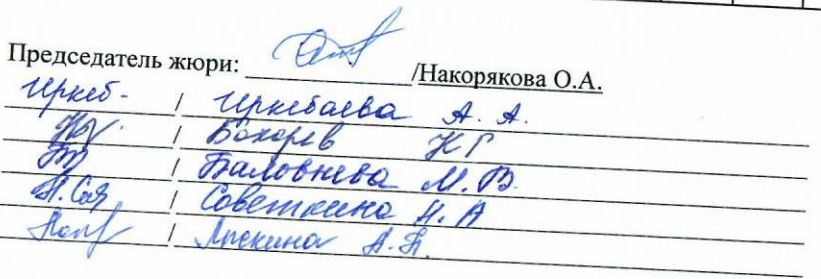 Председатель жюри: /Накорякова О.А.
Иркеб- / Иркебаева А. А.
/ Бахорев
/ Баловнева М. В.
Н.Сов / Советкина Н. А
/ А.